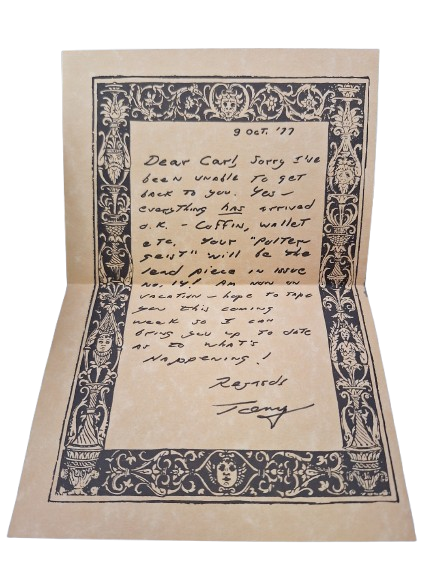 9 Oct. '77
Dear Carl, Sorry I've
been unable to get
back to you. Yes -
everything has arrived
o.k. - Coffin, wallet
etc. Your "Polter
geist" will be the
lead piece in issue
no. 14! Am now on
vacation - hope to tape
you this coming
week so I can
bring you up to date
as to what's
happening!
Regards
Tony